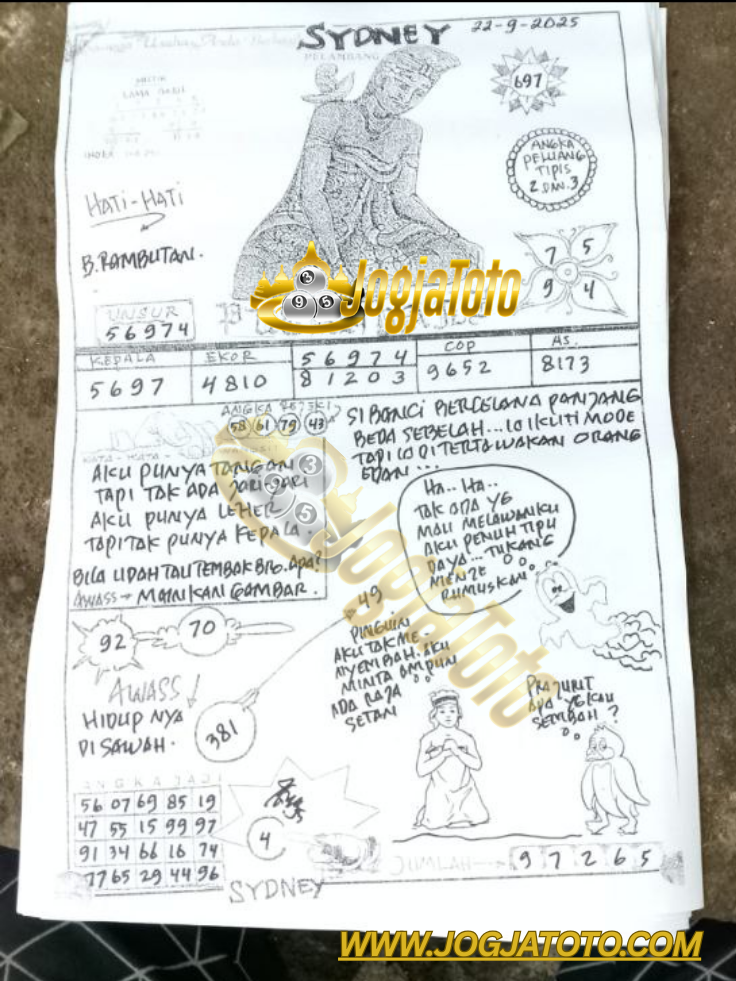 SYDNEY
22-9-2025
PELAMBANG
697
ANGKA
PELUANG
TIPIS
2 DAN 3
HATI-HATI
B. RAMBUTAN.
7 5
9 4
JogjaToto
UNSUR
56974
KEPALA
5697
EKOR
4810
56974
81203
COP
9652
AS.
8173
58 61 79 43
SI BANCI BERCELANA PANJANG
BEDA SEBELAH... LO IKUTI MODE
TAPI LO DI TERTAWAKAN ORANG
EDAN...
AKU PUNYA TANGAN
TAPI TAK ADA JARI-JARI
AKU PUNYA LEHER
TAPI TAK PUNYA KEPALA.
BILA UDAH TAU TEMBAK BRO. APA?
AWASS → MAINKAN GAMBAR.
HA.. HA..
TAK ADA YG
MAU MELAWANKU
AKU PENUH TIPU
DAYA... TUKANG
RUMUSKAN
JogjaToto
92
70
49
PINGUIN
AKU TAK ME.
NYEMBAH. AKU
MINTA AMPUN
ADA RAJA
SETAN
AWASS
HIDUP NYA
DI SAWAH.
381
PRAJURIT
APA YG KAU
SEMBAH?
ANGKA JADI
56 07 69 85 19
47 55 15 99 97
91 34 66 16 74
77 65 29 44 96
4
SYDNEY
JUMLAH
9 7 2 6 5
WWW.JOGJATOTO.COM